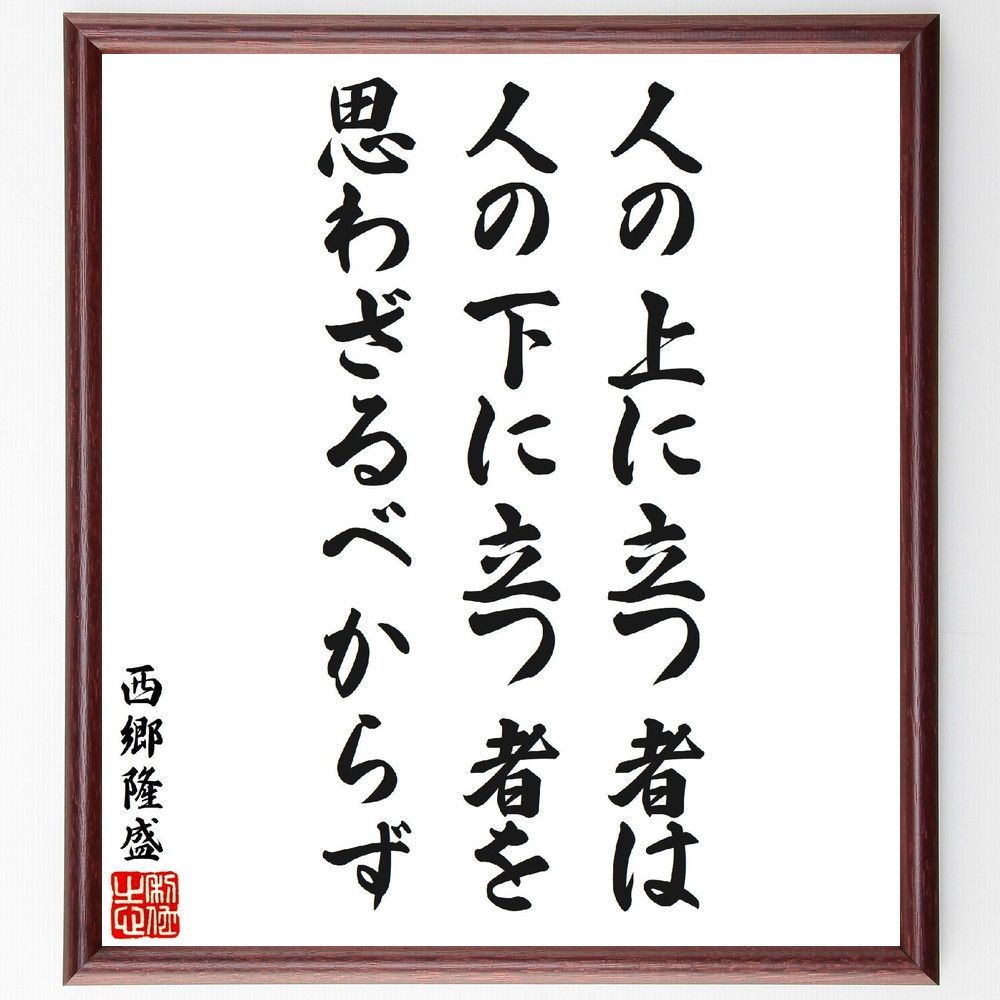 人の上に立つ者は
人の下に立つ者を
思わざるべからず
西郷隆盛